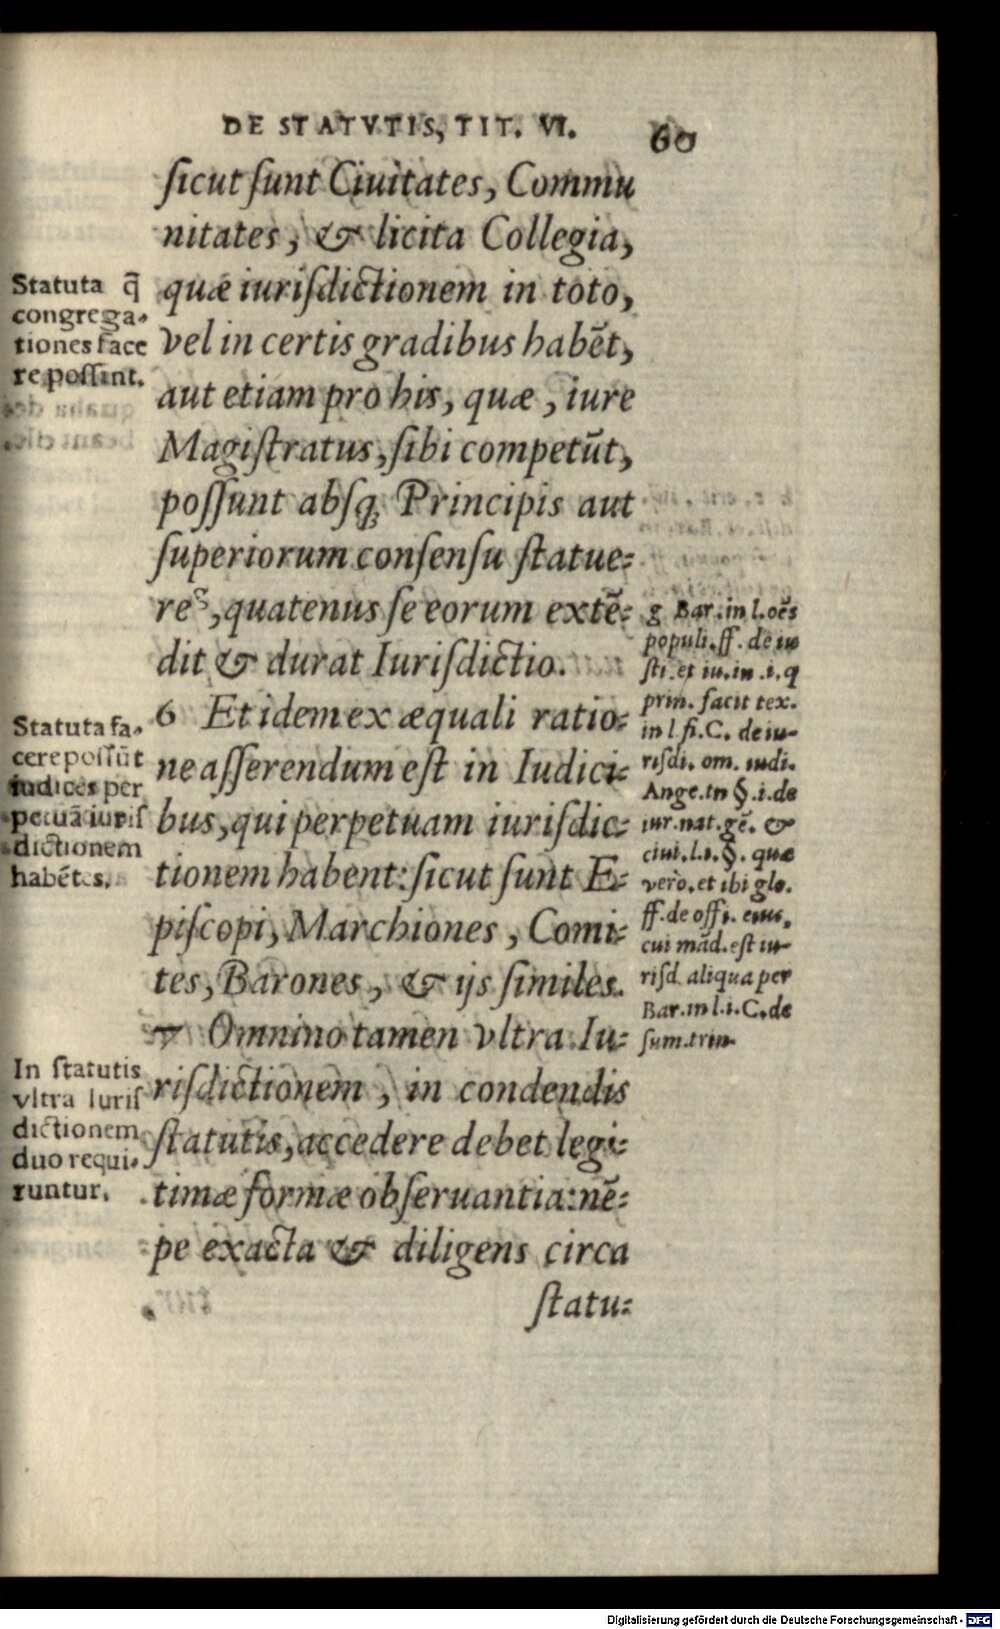 DE STATVTIS, TIT. VI. 60
ſicut ſunt Ciuitates, Commu
nitates, & licita Collegia,
quæ iuriſdictionem in toto,
vel in certis gradibus habēt,
aut etiam pro his, quæ, iure
Magiſtratus, ſibi competūt,
poſſunt abſq; Principis aut
ſuperiorum conſensu ſtatue=
re g, quatenus ſe eorum extē=
dit & durat Iuriſdictio.
6 Et idem ex æquali ratio=
ne aſſerendum eſt in Iudici=
bus, qui perpetuam iuriſdic=
tionem habent: ſicut ſunt E=
piſcopi, Marchiones, Comi=
tes, Barones, & ijs ſimiles.
7 Omnino tamen vltra Iu=
riſdictionem, in condendis
ſtatutis, accedere debet legi=
timæ formæ obſeruantia: nē=
pe exacta & diligens circa
ſtatu=
Statuta q̄
congrega-
tiones face
re poſſint.
Statuta fa-
cere poſſūt
iudices per
petuā iuriſ
dictionem
habētes.
In ſtatutis
vltra iuriſ
dictionem
duo requi-
runtur.
g Bar. in l. oēs
populi. ff. de iu
ſti. et iu. in .i. q
prin. facit tex.
in l. fi. C. de iu-
riſdi. om. iudi.
Ange. in §. i. de
iur. nat. gē. &
ciui. l. i. §. quæ
vero. et ibi glo.
ff. de offi. eius,
cui mād. eſt iu-
riſd. aliqua per
Bar. in l. i. C. de
ſum. trin.
Digitalisierung gefördert durch die Deutsche Forschungsgemeinschaft - DFG